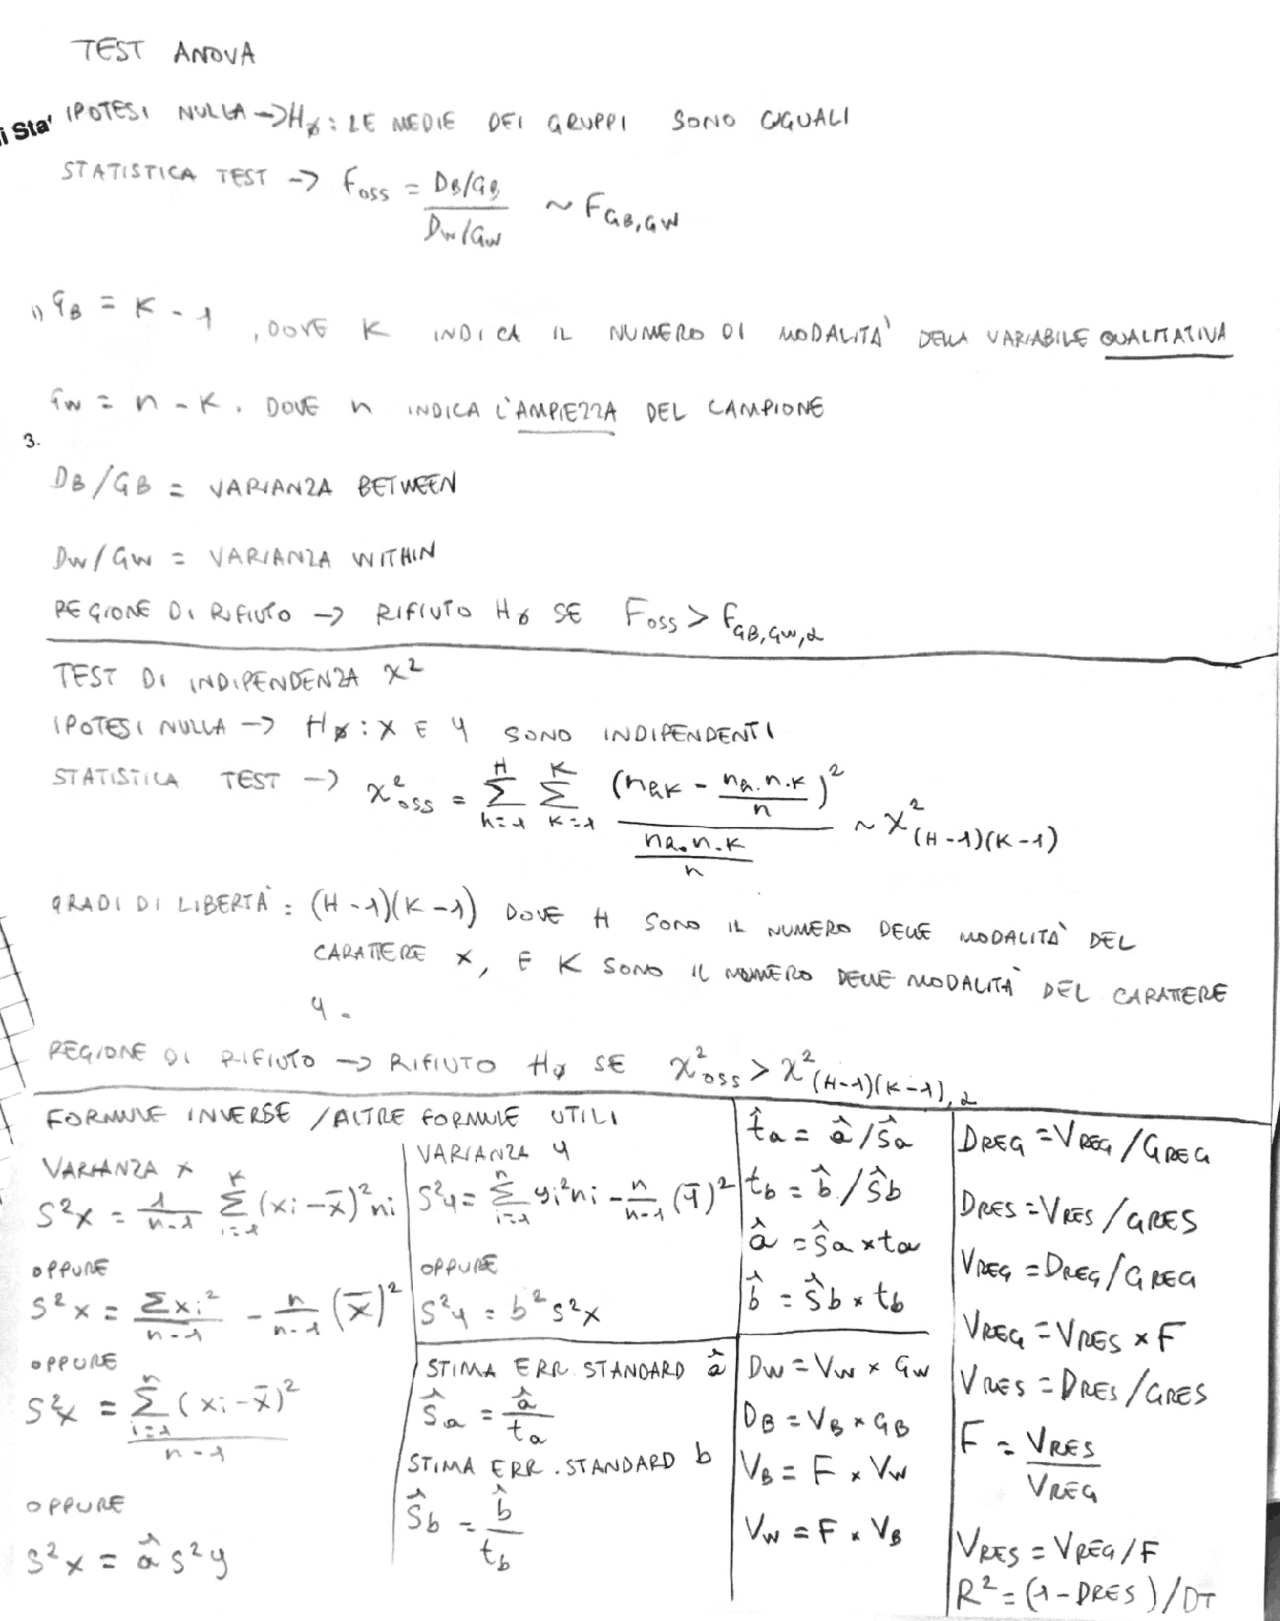 TEST ANOVA
i Sta'
IPOTESI NULLA → H∅: LE MEDIE DEI GRUPPI SONO UGUALI
STATISTICA TEST → Foss = (DB/GB)/(DW/GW) ~ F GB,GW
1) GB = K - 1, DOVE K INDICA IL NUMERO DI MODALITA' DELLA VARIABILE QUALITATIVA
GW = n - K, DOVE n INDICA L'AMPIEZZA DEL CAMPIONE
3.
DB/GB = VARIANZA BETWEEN
DW/GW = VARIANZA WITHIN
REGIONE DI RIFIUTO → RIFIUTO H∅ SE Foss > F GB,GW,α
TEST DI INDIPENDENZA χ²
IPOTESI NULLA → H∅: X E Y SONO INDIPENDENTI
STATISTICA TEST → χ²oss = Σ(h=1..H) Σ(K=1..K) (nhK - nh.n.K/n)² / (nh.n.K/n) ~ χ²(H-1)(K-1)
GRADI DI LIBERTÀ: (H-1)(K-1) DOVE H SONO IL NUMERO DELLE MODALITA' DEL
CARATTERE X, E K SONO IL NUMERO DELLE MODALITA' DEL CARATTERE
Y.
REGIONE DI RIFIUTO → RIFIUTO H∅ SE χ²oss > χ²(H-1)(K-1),α
FORMULE INVERSE / ALTRE FORMULE UTILI
VARIANZA X
S²X = 1/(n-1) Σ(i=1..K) (xi - x̄)² ni
OPPURE
S²X = Σxi²/(n-1) - n/(n-1) (x̄)²
OPPURE
S²X = Σ(i=1..n) (xi - x̄)² / (n-1)
OPPURE
S²X = â S²y
VARIANZA Y
S²Y = Σ(i=1..n) yi² ni - n/(n-1) (ȳ)²
OPPURE
S²Y = b² S²X
STIMA ERR. STANDARD â
Ŝa = â/ta
STIMA ERR. STANDARD b
Ŝb = b̂/tb
t̂a = â/Ŝa
tb = b̂/Ŝb
â = Ŝa × ta
b̂ = Ŝb × tb
DW = VW × GW
DB = VB × GB
VB = F × VW
VW = F × VB
DREG = VREG/GREG
DRES = VRES/GRES
VREG = DREG/GREG
VREG = VRES × F
VRES = DRES/GRES
F = VRES/VREG
VRES = VREG/F
R² = (1 - DRES)/DT